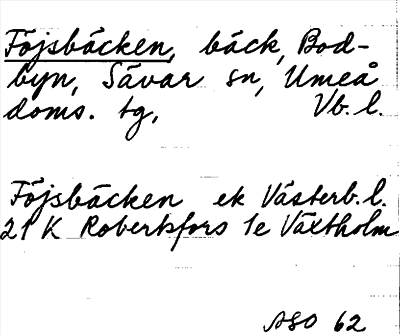 Föjsbäcken, bäck, Bod-
byn, Sävar sn, Umeå
doms. tg, Vb. l.
Föjsbäcken ek Västerb. l.
21 K Robertsfors 1e Växtholm
ASO 62